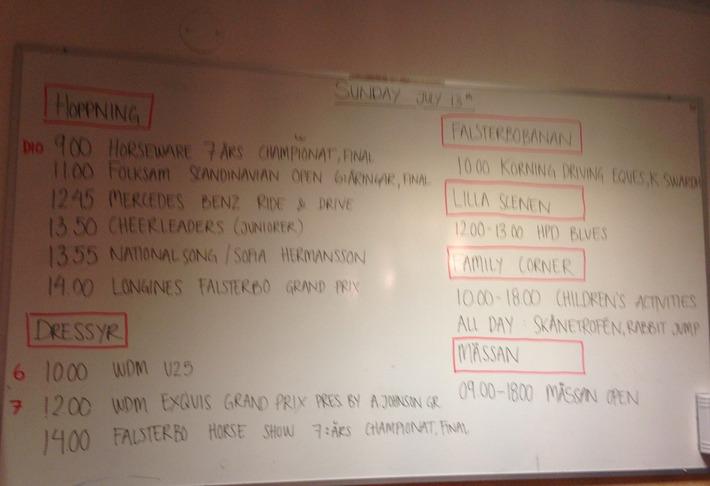 SUNDAY JULY 13th
HOPPNING
D10 9.00 HORSEWARE 7 ÅRS CHAMPIONAT, FINAL
11.00 FOLKSAM SCANDINAVIAN OPEN 6 ÅRINGAR, FINAL
12.45 MERCEDES BENZ RIDE & DRIVE
13.50 CHEERLEADERS (JUNIORER)
13.55 NATIONALSONG / SOFIA HERMANSSON
14.00 LONGINES FALSTERBO GRAND PRIX
DRESSYR
6 10.00 WDM U25
7 12.00 WDM EXQUIS GRAND PRIX PRES. BY A JOHNSON GR
14.00 FALSTERBO HORSE SHOW 7:ÅRS CHAMPIONAT, FINAL
FALSTERBOBANAN
10.00 KÖRNING DRIVING EQUES, K
LILLA SCENEN
12.00-13.00 HPD BLUES
FAMILY CORNER
10.00-18.00 CHILDREN'S ACTIVITIES
ALL DAY: SKÅNETROFÉN, RABBIT JUMP
MÄSSAN
09.00-18.00 MÄSSAN OPEN